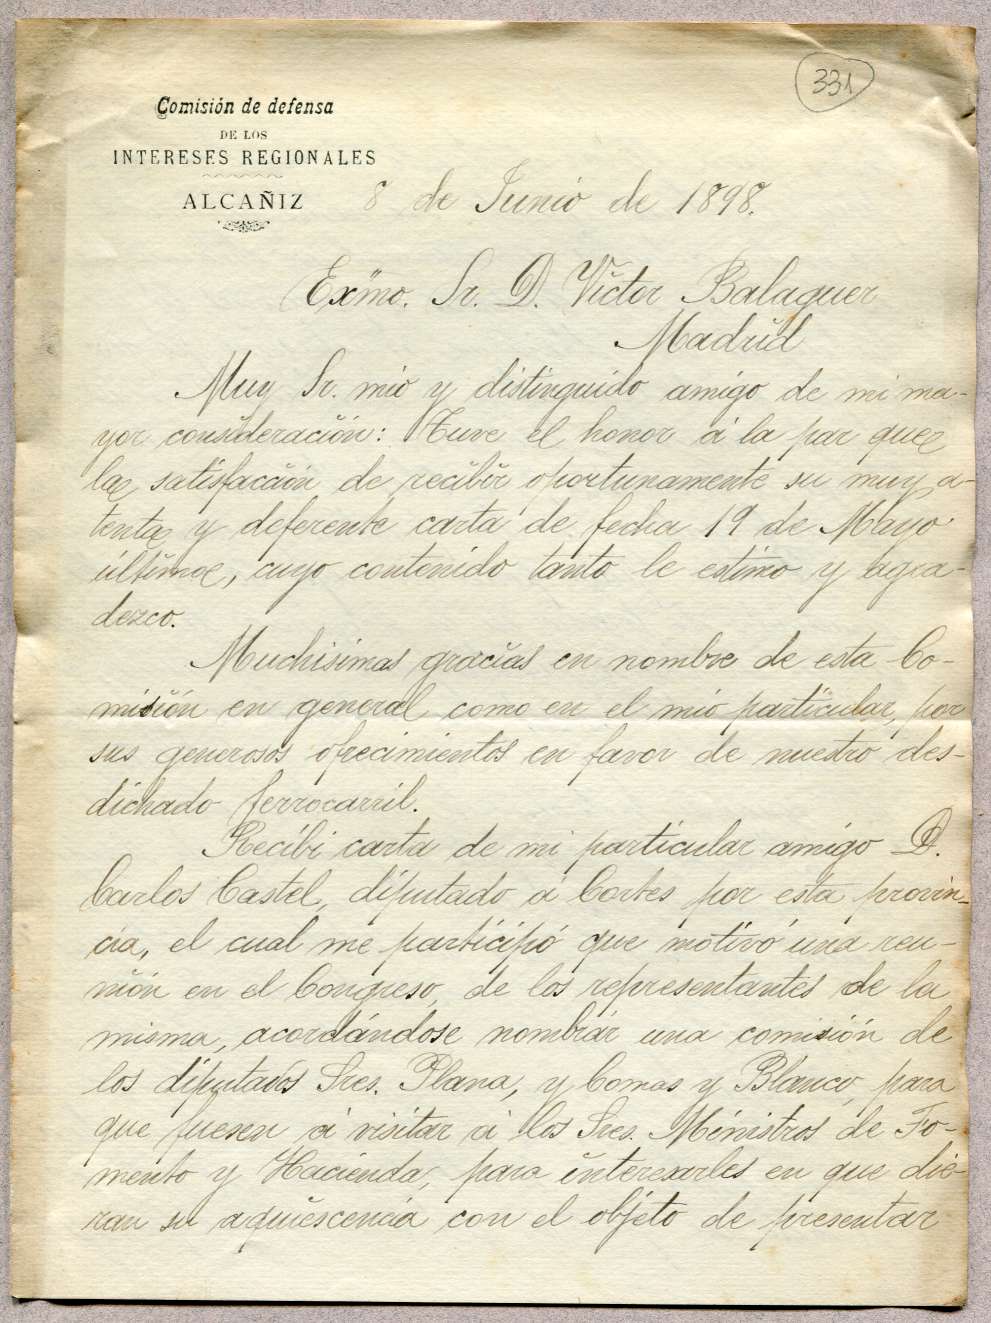 331
Comisión de defensa
DE LOS
INTERESES REGIONALES
ALCAÑIZ
8 de Junio de 1898.
Exmo. Sr. D. Victor Balaguer
Madrid
Muy Sr. mio y distinguido amigo de mi ma-
yor consideración: Tuve el honor á la par que
la satisfacción de recibir oportunamente su muy a-
tenta y deferente carta de fecha 19 de Mayo
último, cuyo contenido tanto le estimo y agra-
dezco.
Muchisimas gracias en nombre de esta Co-
misión en general, como en el mio particular, por
sus generosos ofrecimientos en favor de nuestro des-
dichado ferrocarril.
Recibi carta de mi particular amigo D.
Carlos Castel, diputado á Cortes por esta provin-
cia, el cual me participó que motivó una reu-
nión en el Congreso, de los representantes de la
misma, acordándose nombrar una comisión de
los diputados Sres. Plana, y Comas y Blanco, para
que fuesen á visitar á los Sres. Ministros de Fo-
mento y Hacienda, para interesarles en que die-
ran su aquiescencia con el objeto de presentar